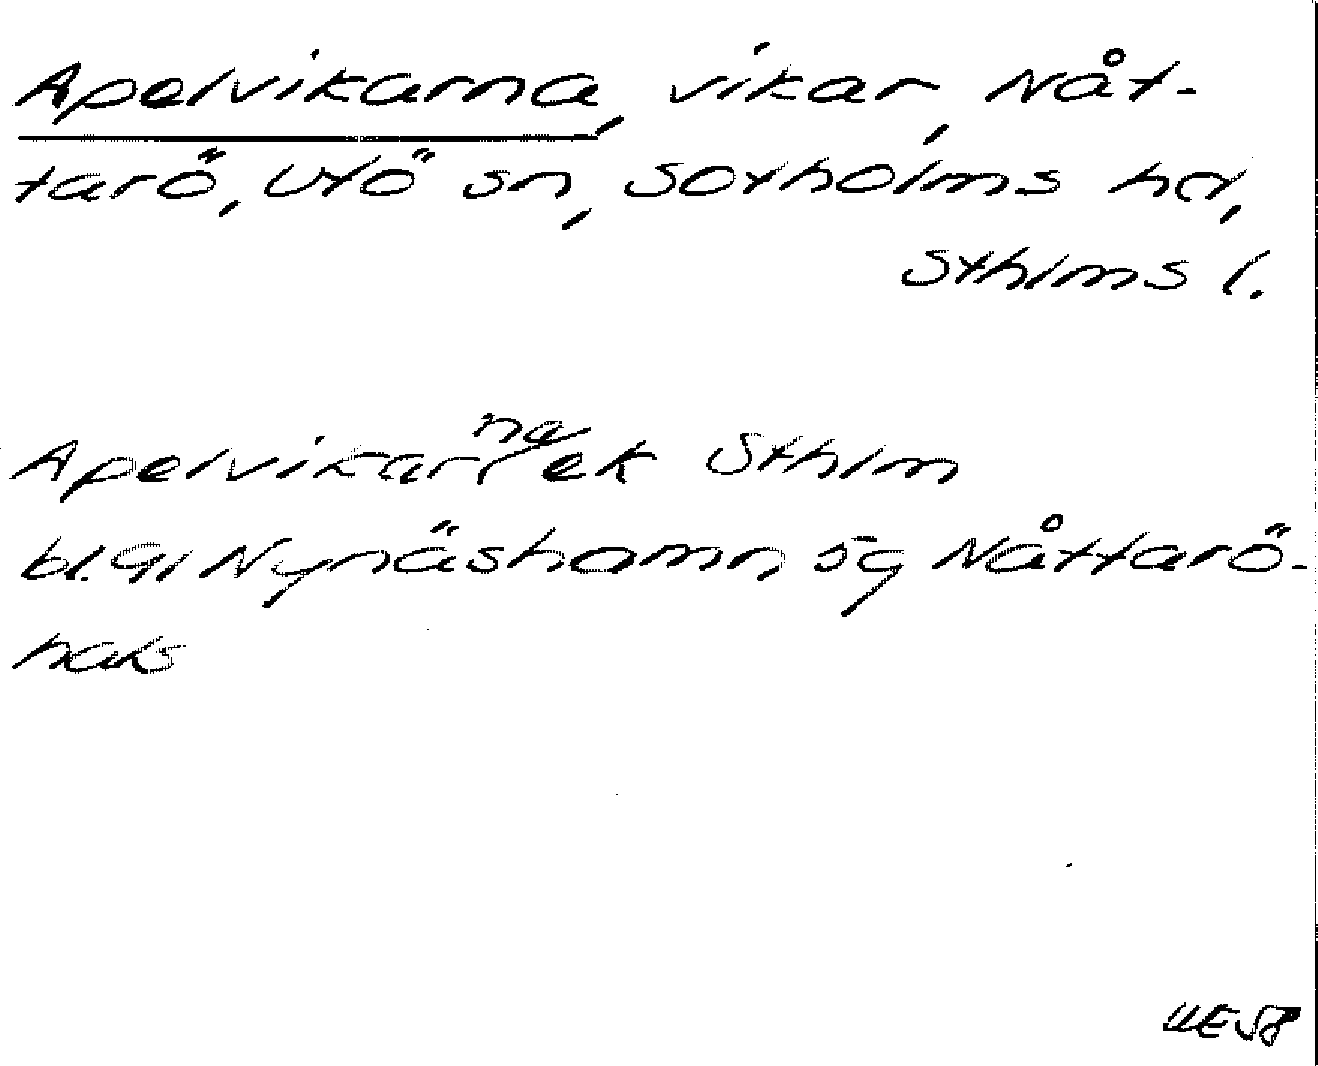 Apelvikarna, vikar, Nåt-
tarö, Utö sn, Sotholms hd,
Sthlms l.
Apelvikarna ek Sthlm
bl. 91 Nynäshamn, sg Nåttarö-
haks
UE 58